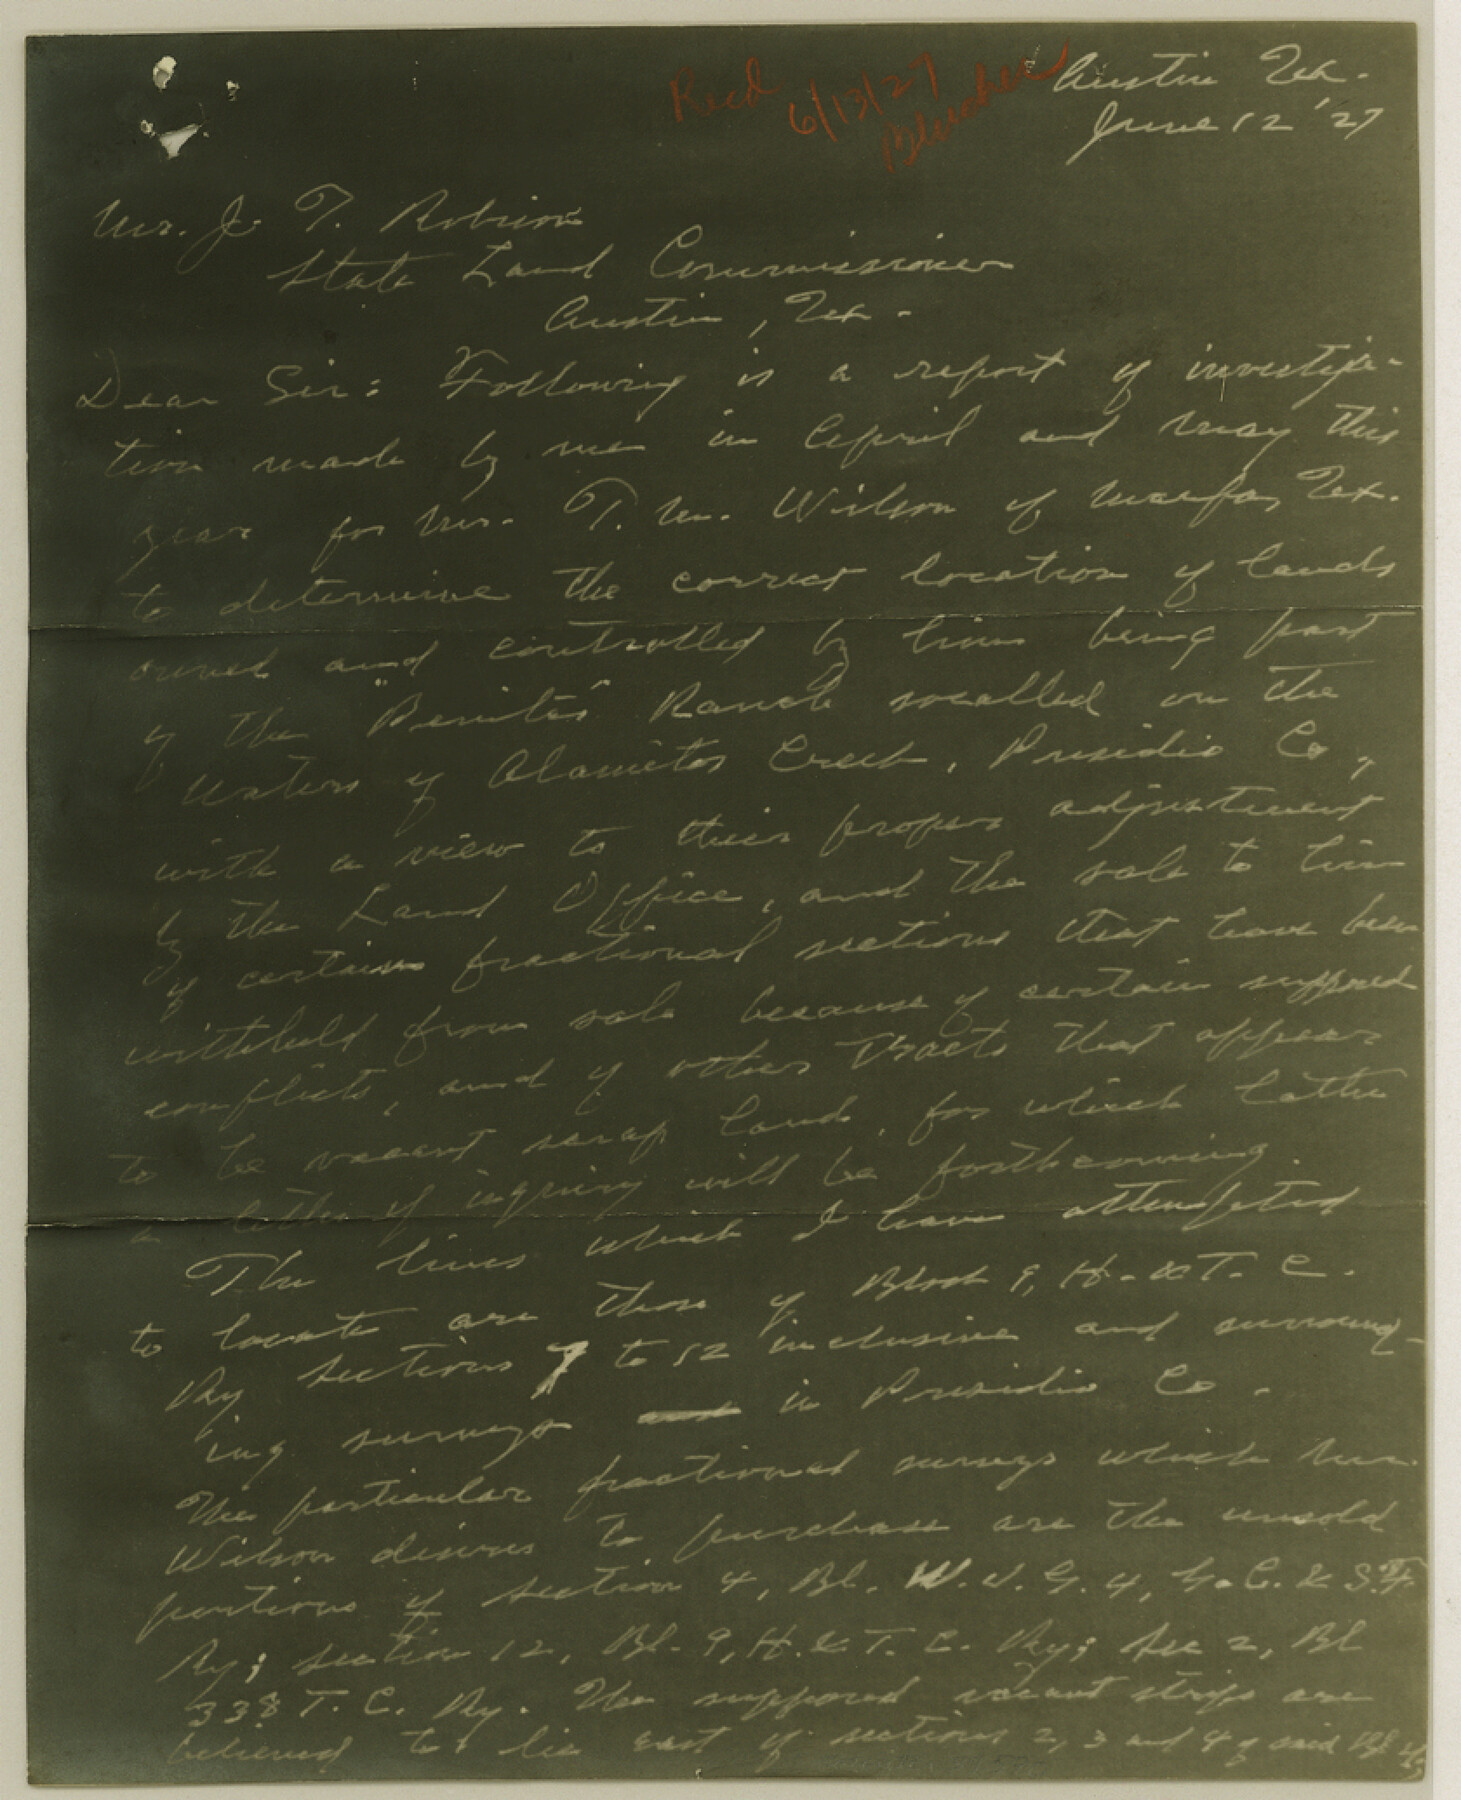 Recd 6/13/27
Blucher
Austin Tex.
June 12 '27
Mr. J. T. Robison
State Land Commissioner
Austin, Tex.
Dear Sir: Following is a report of investiga-
tion made by me in April and May this
year for Mr. T. M. Wilson of Marfa, Tex.
to determine the correct location of lands
owned and controlled by him being part
of the "Benites" Ranch socalled on the
waters of Alamitos Creek, Presidio Co,
with a view to their proper adjustment
by the Land Office, and the sale to him
of certain fractional sections that have been
withheld from sale because of certain supposed
conflicts, and of other tracts that appear
to be vacant scrap land, for which latter
a letter of inquiry will be forthcoming.
The lines which I have attempted
to locate are those of Block 9, H. & T. C.
Ry sections 7 to 12 inclusive and surround-
ing surveys in Presidio Co.
The particular fractional surveys which Mr.
Wilson desires to purchase are the unsold
portions of section 4, Bl. W.J.G. 4, G.C. & S.F.
Ry; section 12, Bl. 9, H. & T. C. Ry; Sec 2, Bl
338 T. C. Ry. The supposed vacant strips are
believed to lie east of sections 2, 3 and 4 of said Bl